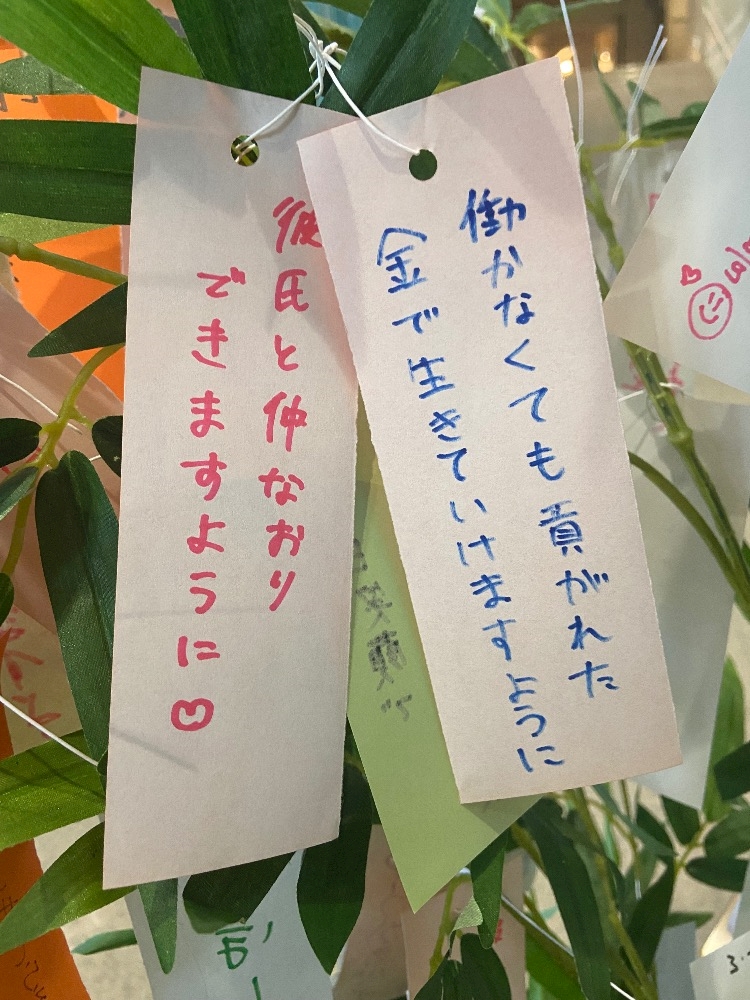 働かなくても貢がれた
金で生きていけますように
彼氏と仲なおり
できますように♡